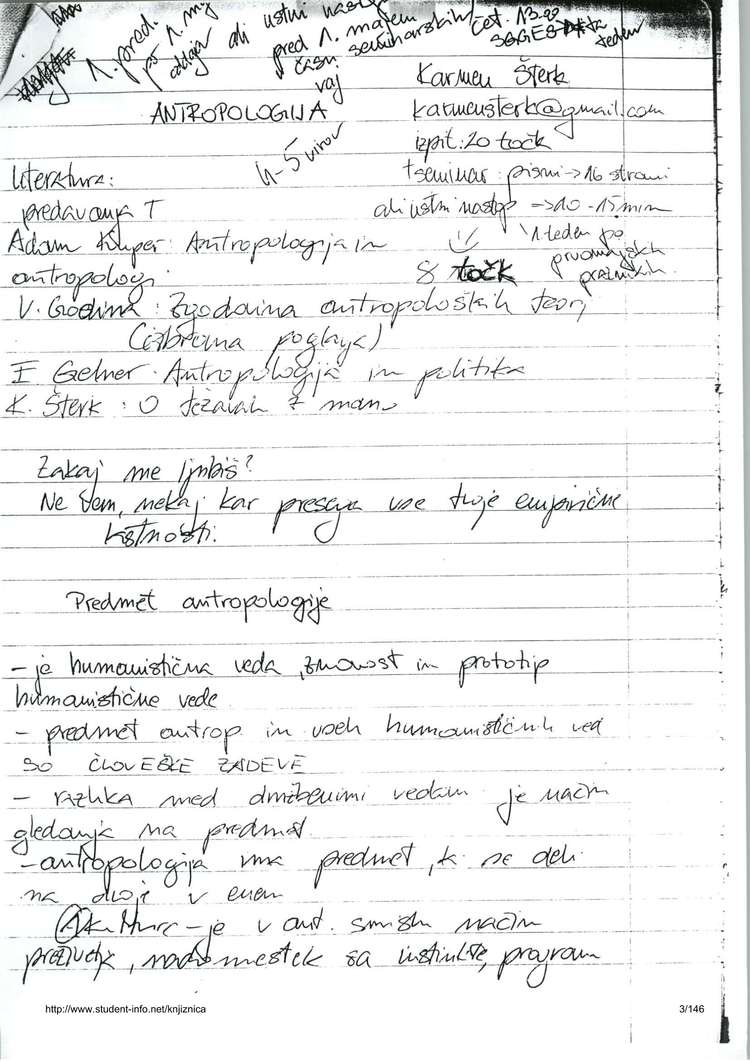 1. pred.
po 1. maj
oddaja ali ustni nastop
pred 1. majem
seminarskih
čet. 13.00
teden
časi
vaj
Karmen Šterk
ANTROPOLOGIJA
karmensterk@gmail.com
4-5 virov
izpit: 20 točk
Literatura:
+ seminar: pisni -> 16 strani
predavanja T
ali ustni nastop -> 10-15 min
Adam Kuper: Antropologija in
antropologi
1 teden po
prvomajskih
praznikih.
8 točk
V. Godina: Zgodovina antropoloških teorij
(izbrana poglavja)
E Gelner: Antropologija in politika
K. Šterk: O težavah z mano
Zakaj me ljubiš?
Ne vem, nekaj kar presega vse tvoje empirične
lastnosti.
Predmet antropologije
- je humanistična veda, znanost in prototip
humanistične vede
- predmet antrop. in vseh humanističnih ved
so ČLOVEŠKE ZADEVE
- razlika med družbenimi vedam je način
gledanja na predmet.
- antropologija ima predmet, ki se deli
na dvoje v enem
1 kulture - je v ant. smislu način
preživetja, nadomestek za instinkte, program
http://www.student-info.net/knjiznica
3/146